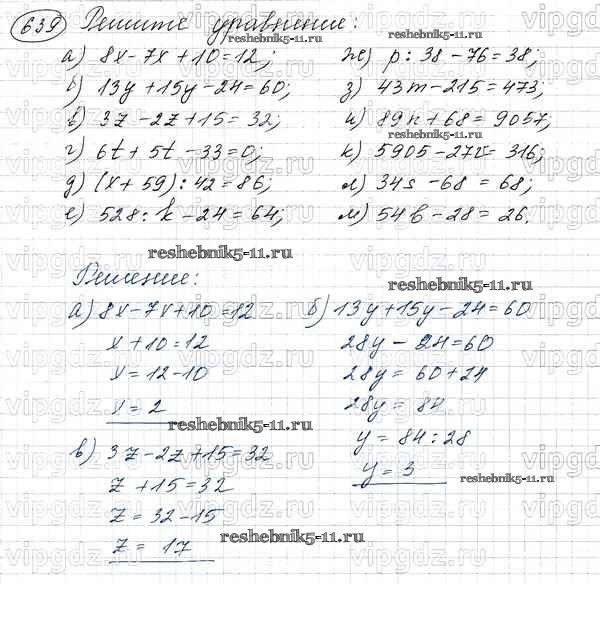 639 Решите уравнение:
а) 8x - 7x + 10 = 12;
б) 13y + 15y - 24 = 60;
в) 3z - 2z + 15 = 32;
г) 6t + 5t - 33 = 0;
д) (x + 59) : 42 = 86;
е) 528 : k - 24 = 64;
ж) p : 38 - 76 = 38;
з) 43m - 215 = 473;
и) 89n + 68 = 9057;
к) 5905 - 27v = 316;
л) 34s - 68 = 68;
м) 54b - 28 = 26.
Решение:
а) 8x - 7x + 10 = 12
x + 10 = 12
x = 12 - 10
x = 2
б) 13y + 15y - 24 = 60
28y - 24 = 60
28y = 60 + 24
28y = 84
y = 84 : 28
y = 3
в) 3z - 2z + 15 = 32
z + 15 = 32
z = 32 - 15
z = 17
reshebnik5-11.ru
reshebnik5-11.ru
reshebnik5-11.ru
reshebnik5-11.ru
reshebnik5-11.ru
reshebnik5-11.ru
reshebnik5-11.ru
reshebnik5-11.ru
vipgdz.ru